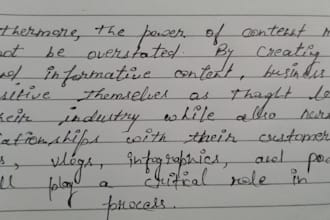 thermore, the power of content m
not be overstated. By creating
nd informative content, busines
sitive themselves as thaght le
heir industry while also nur
lationships with their customer
s, vlogs, infographics, and po
ll play a critical role in
process.